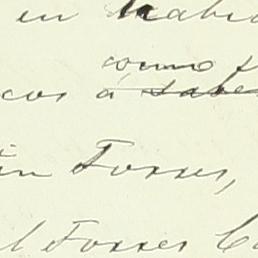 en
como
cos á sabe
in Torres,
l Torres